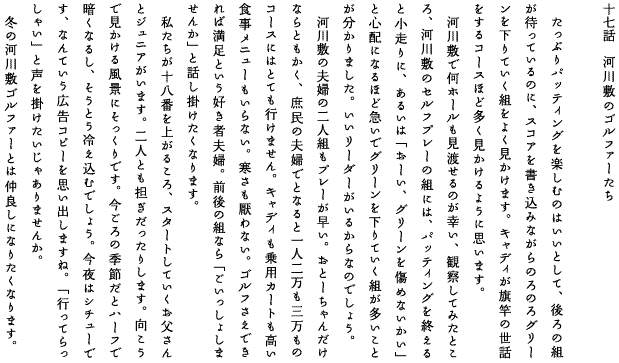 十七話　河川敷のゴルファーたち
　たっぷりパッティングを楽しむのはいいとして、後ろの組
が待っているのに、スコアを書き込みながらのろのろグリー
ンを下りていく組をよく見かけます。キャディが旗竿の世話
をするコースほど多く見かけるように思います。
　河川敷で何ホールも見渡せるのが幸い、観察してみたとこ
ろ、河川敷のセルフプレーの組には、パッティングを終える
と小走りに、あるいは「おーい、グリーンを傷めないかい」
と心配になるほど急いでグリーンを下りていく組が多いこと
が分かりました。いいリーダーがいるからなのでしょう。
　河川敷の夫婦の二人組もプレーが早い。おとーちゃんだけ
ならともかく、庶民の夫婦でとなると一人二万も三万もの
コースにはとても行けません。キャディも乗用カートも高い
食事メニューもいらない。寒さも厭わない。ゴルフさえでき
れば満足という好き者夫婦。前後の組なら「ごいっしょしま
せんか」と話し掛けたくなります。
　私たちが十八番を上がるころ、スタートしていくお父さん
とジュニアがいます。二人とも担ぎだったりします。向こう
で見かける風景にそっくりです。今ごろの季節だとハーフで
暗くなるし、そうとう冷え込むでしょう。今夜はシチューで
す、なんていう広告コピーを思い出しますね。「行ってらっ
しゃい」と声を掛けたいじゃありませんか。
　冬の河川敷ゴルファーとは仲良しになりたくなります。